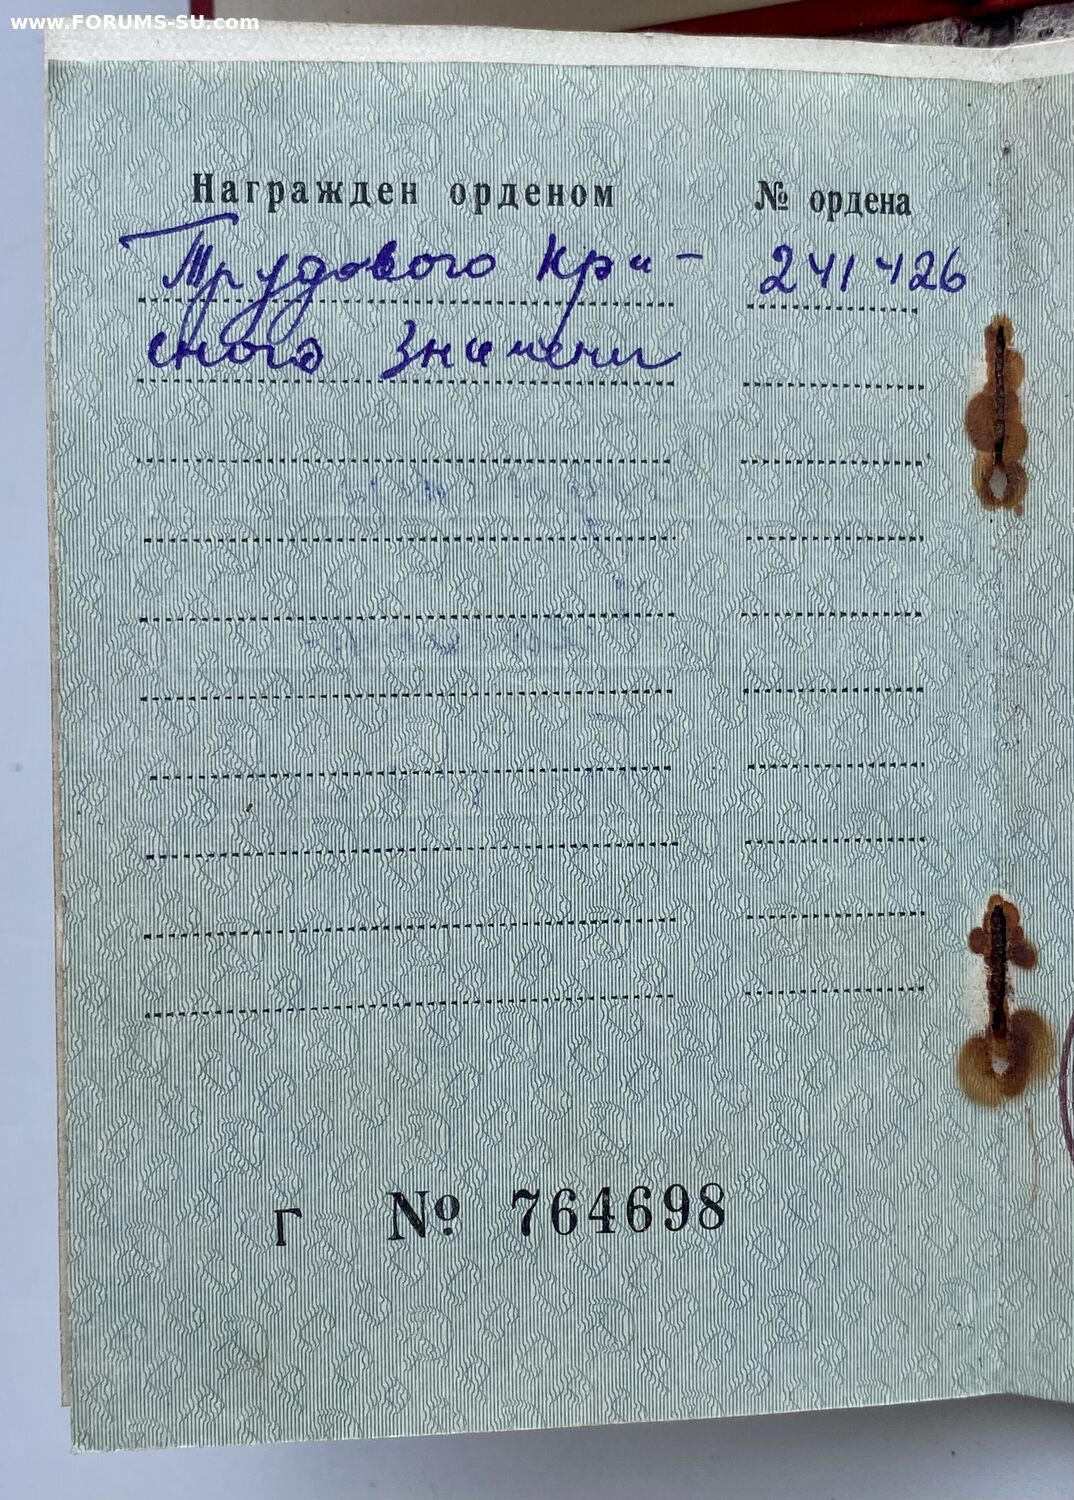 www.FORUMS-SU.com
Награжден орденом № ордена
Трудового Кра- 241426
сного Знамени
Г № 764698